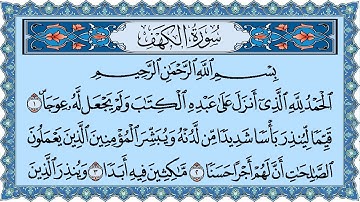 سُورَةُ الْكَهْفِ
بِسْمِ اللَّهِ الرَّحْمَٰنِ الرَّحِيمِ
الْحَمْدُ لِلَّهِ الَّذِي أَنزَلَ عَلَىٰ عَبْدِهِ الْكِتَٰبَ وَلَمْ يَجْعَل لَّهُ عِوَجًا ١
قَيِّمًا لِّيُنذِرَ بَأْسًا شَدِيدًا مِّن لَّدُنْهُ وَيُبَشِّرَ الْمُؤْمِنِينَ الَّذِينَ يَعْمَلُونَ
الصَّٰلِحَٰتِ أَنَّ لَهُمْ أَجْرًا حَسَنًا ٢ مَّٰكِثِينَ فِيهِ أَبَدًا ٣ وَيُنذِرَ الَّذِينَ